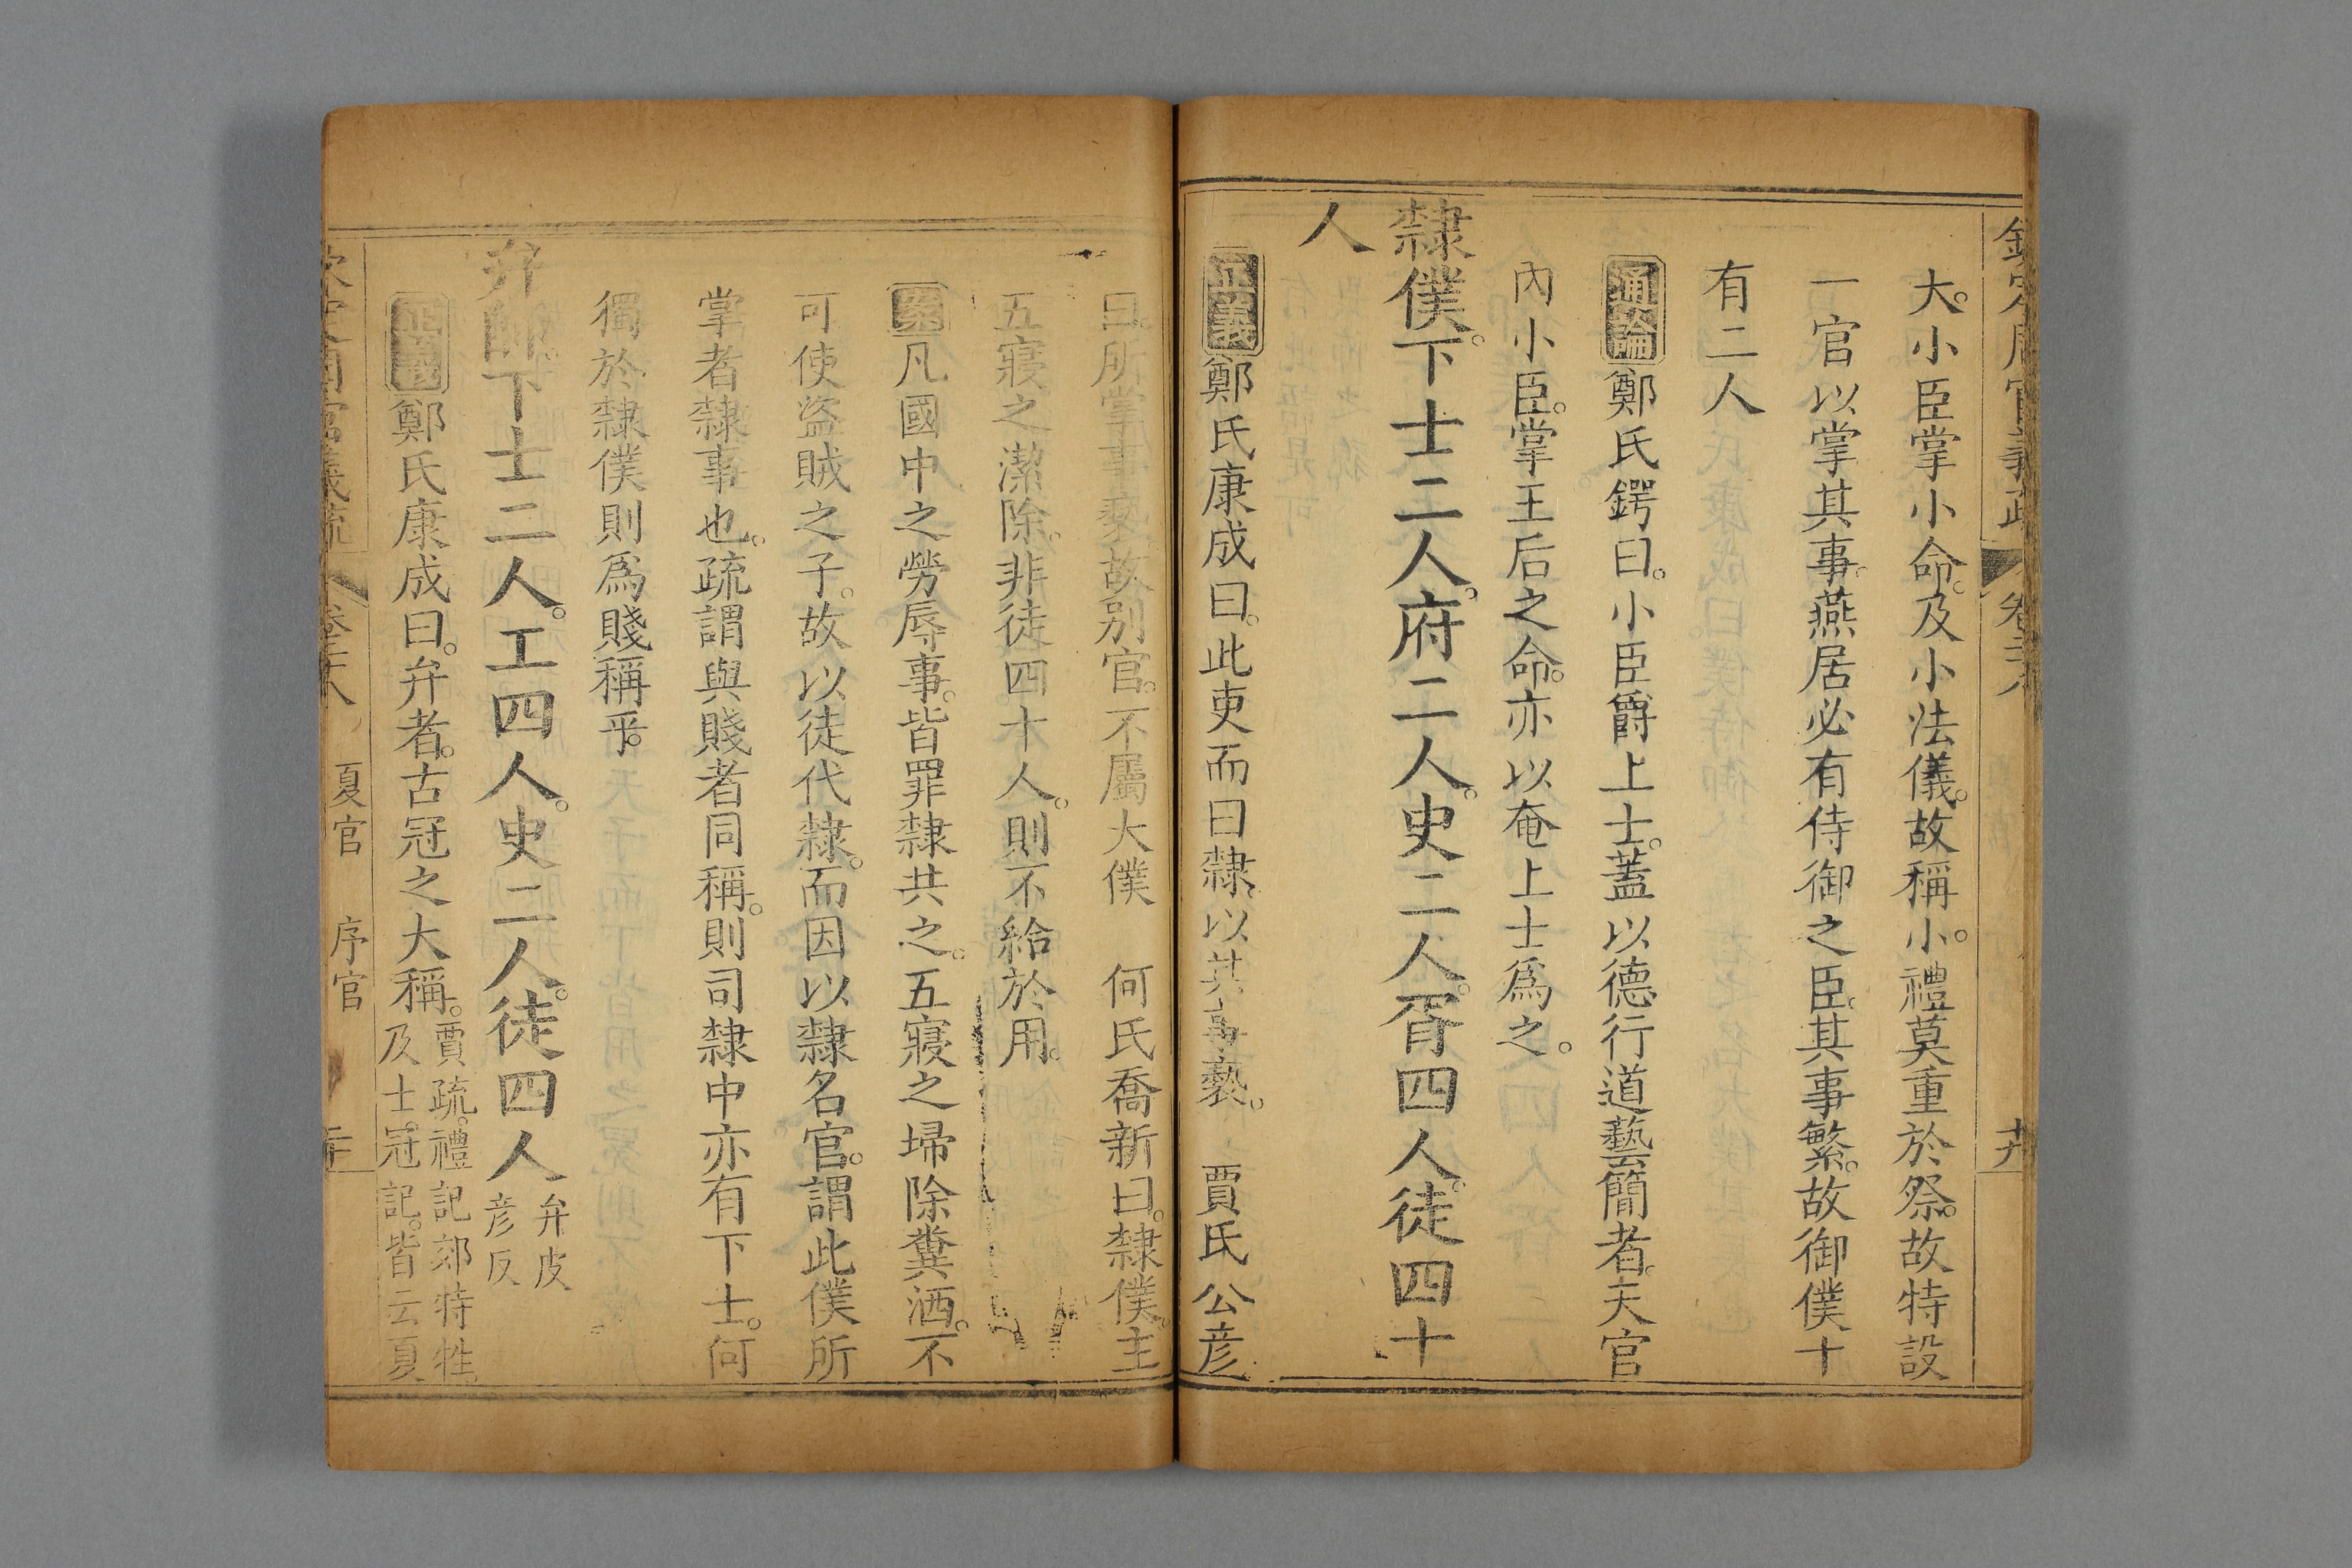 欽定周官義疏 卷二十八 十九
大。小臣掌小命。及小法儀。故稱小。禮莫重於祭。故特設
一官以掌其事。燕居必有侍御之臣。其事繁。故御僕十
有二人
通論鄭氏鍔曰。小臣爵上士。蓋以德行道藝簡者。天官
內小臣。掌王后之命。亦以奄上士爲之。
隸僕。下士二人。府二人。史二人。胥四人。徒四十
人
正義鄭氏康成曰。此吏而曰隸。以其事褻。 賈氏公彦
曰。所掌事褻。故别官。不屬大僕 何氏喬新曰。隸僕。主
五寢之潔除。非徒四十人。則不給於用。
案凡國中之勞辱事。皆罪隸共之。五寢之埽除糞洒。不
可使盜賊之子。故以徒代隸。而因以隸名官。謂此僕所
掌者隸事也。疏謂與賤者同稱。則司隸中亦有下士。何
獨於隸僕則爲賤稱乎。
弁師。下士二人。工四人。史二人。徒四人弁皮
彦反
正義鄭氏康成曰。弁者。古冠之大稱。賈疏。禮記郊特牲。
及士冠記。皆云夏
欽定周官義疏 卷二十八 夏官 序官 二十